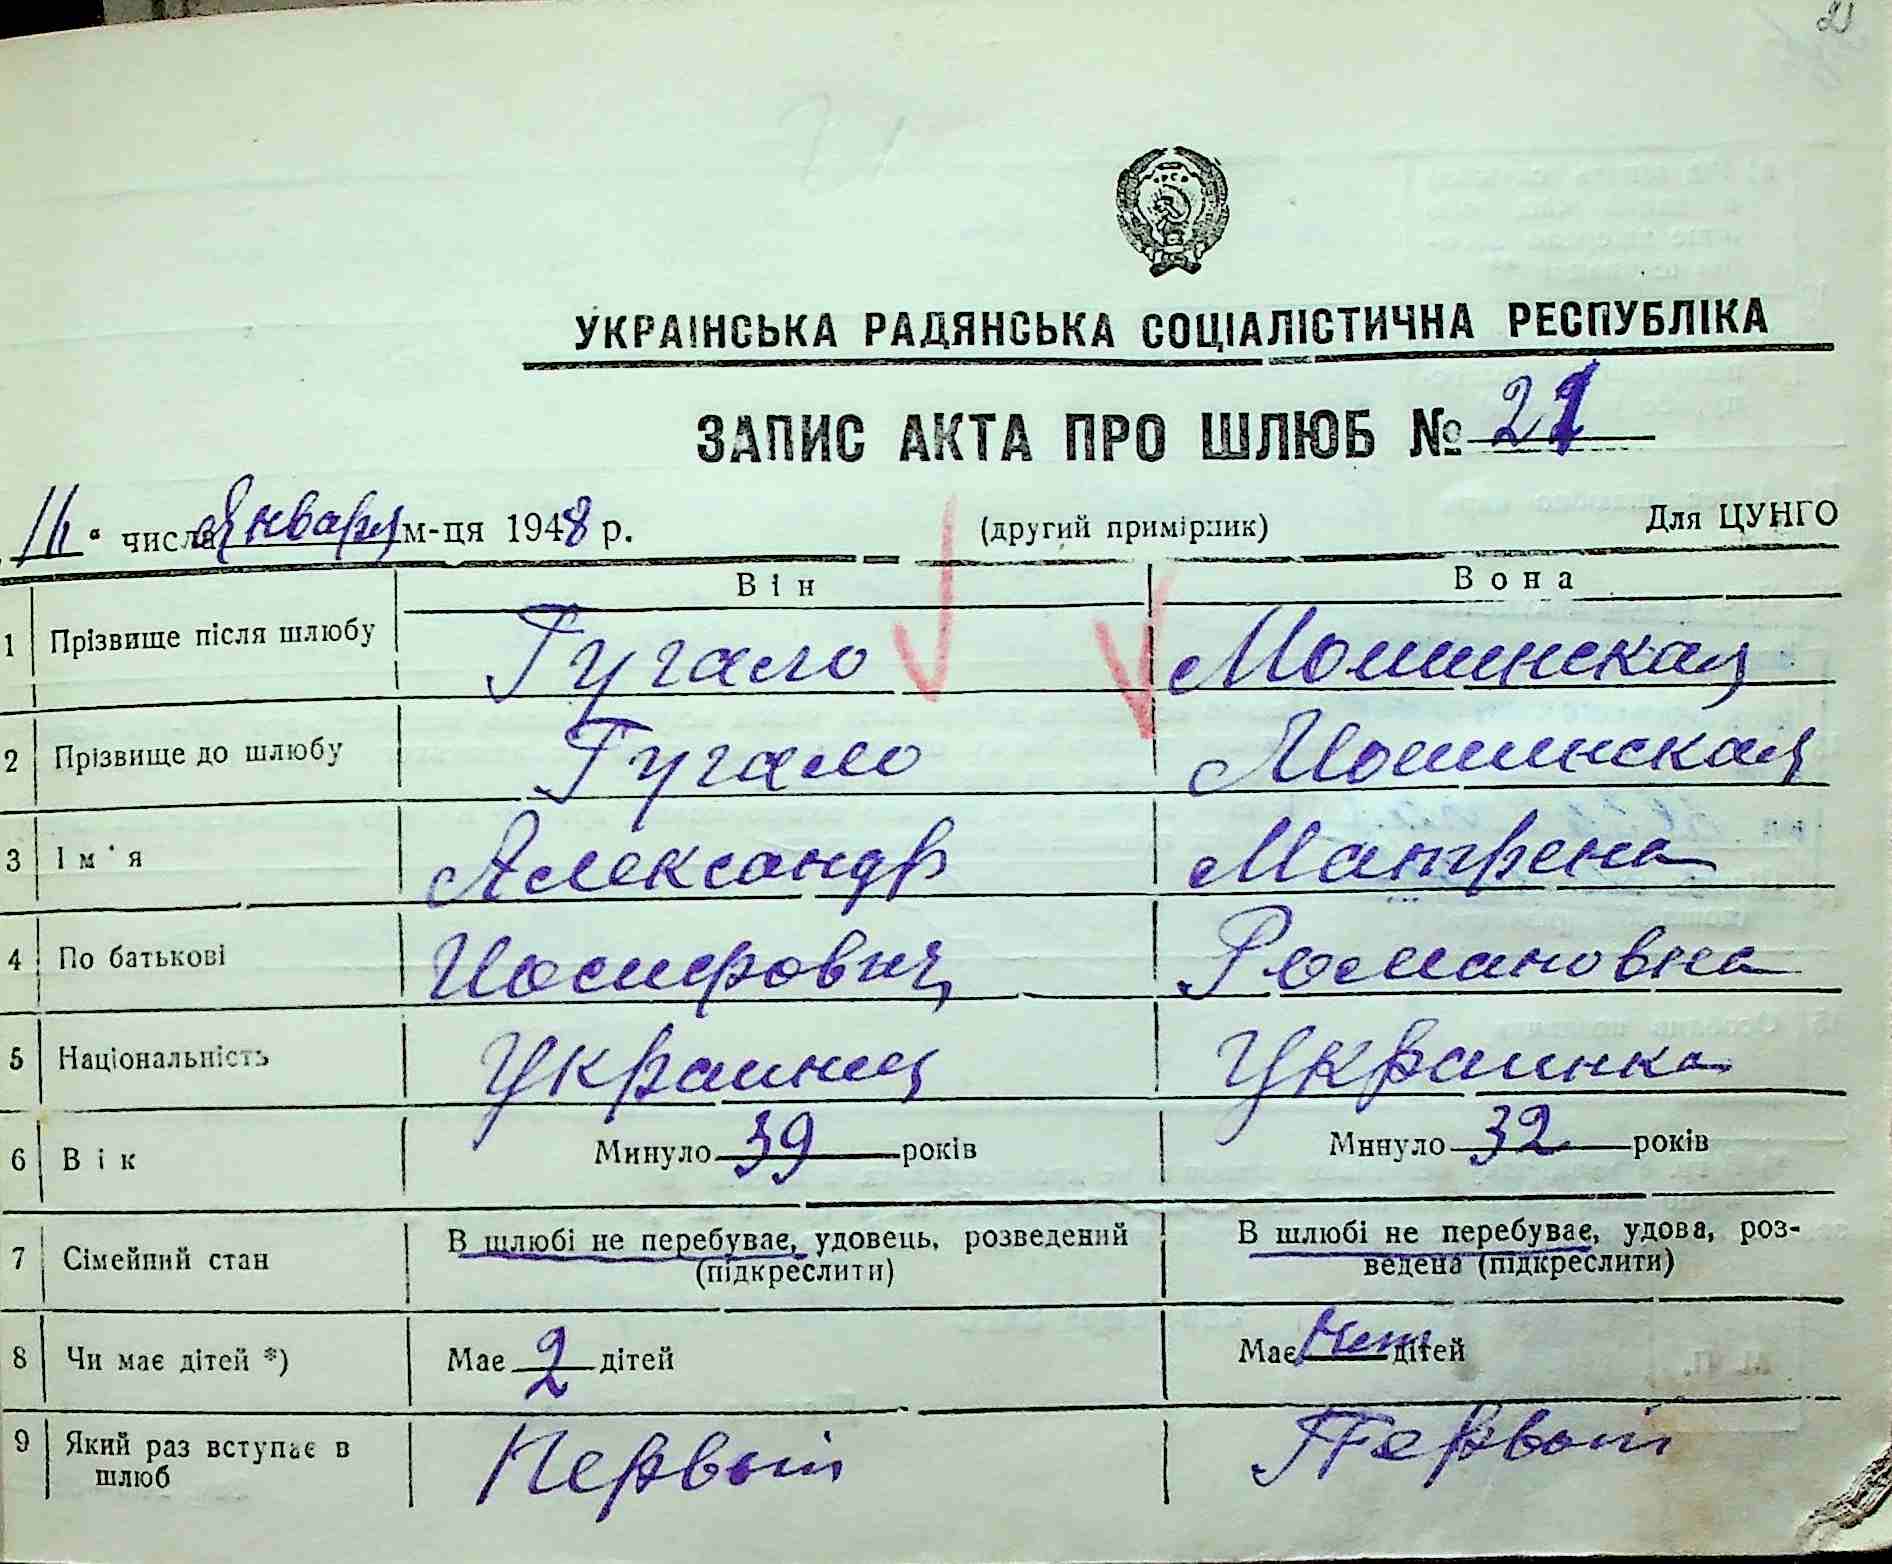 21
УКРАЇНСЬКА РАДЯНСЬКА СОЦІАЛІСТИЧНА РЕСПУБЛІКА
ЗАПИС АКТА ПРО ШЛЮБ № 21
" числа Января м-ця 1948 р. (другий примірник) Для ЦУНГО
Він Вона
1 Прізвище після шлюбу Гугало Мошинская
2 Прізвище до шлюбу Гугало Мошинская
3 Ім'я Александр Матрена
4 По батькові Иосифович Романовна
5 Національність Украинец Украинка
6 Вік Минуло 39 років Минуло 32 років
7 Сімейний стан В шлюбі не перебуває, удовець, розведений (підкреслити) В шлюбі не перебуває, удова, роз-
ведена (підкреслити)
8 Чи має дітей *) Має 2 дітей Має Нет дітей
9 Який раз вступає в Первый Первый
шлюб